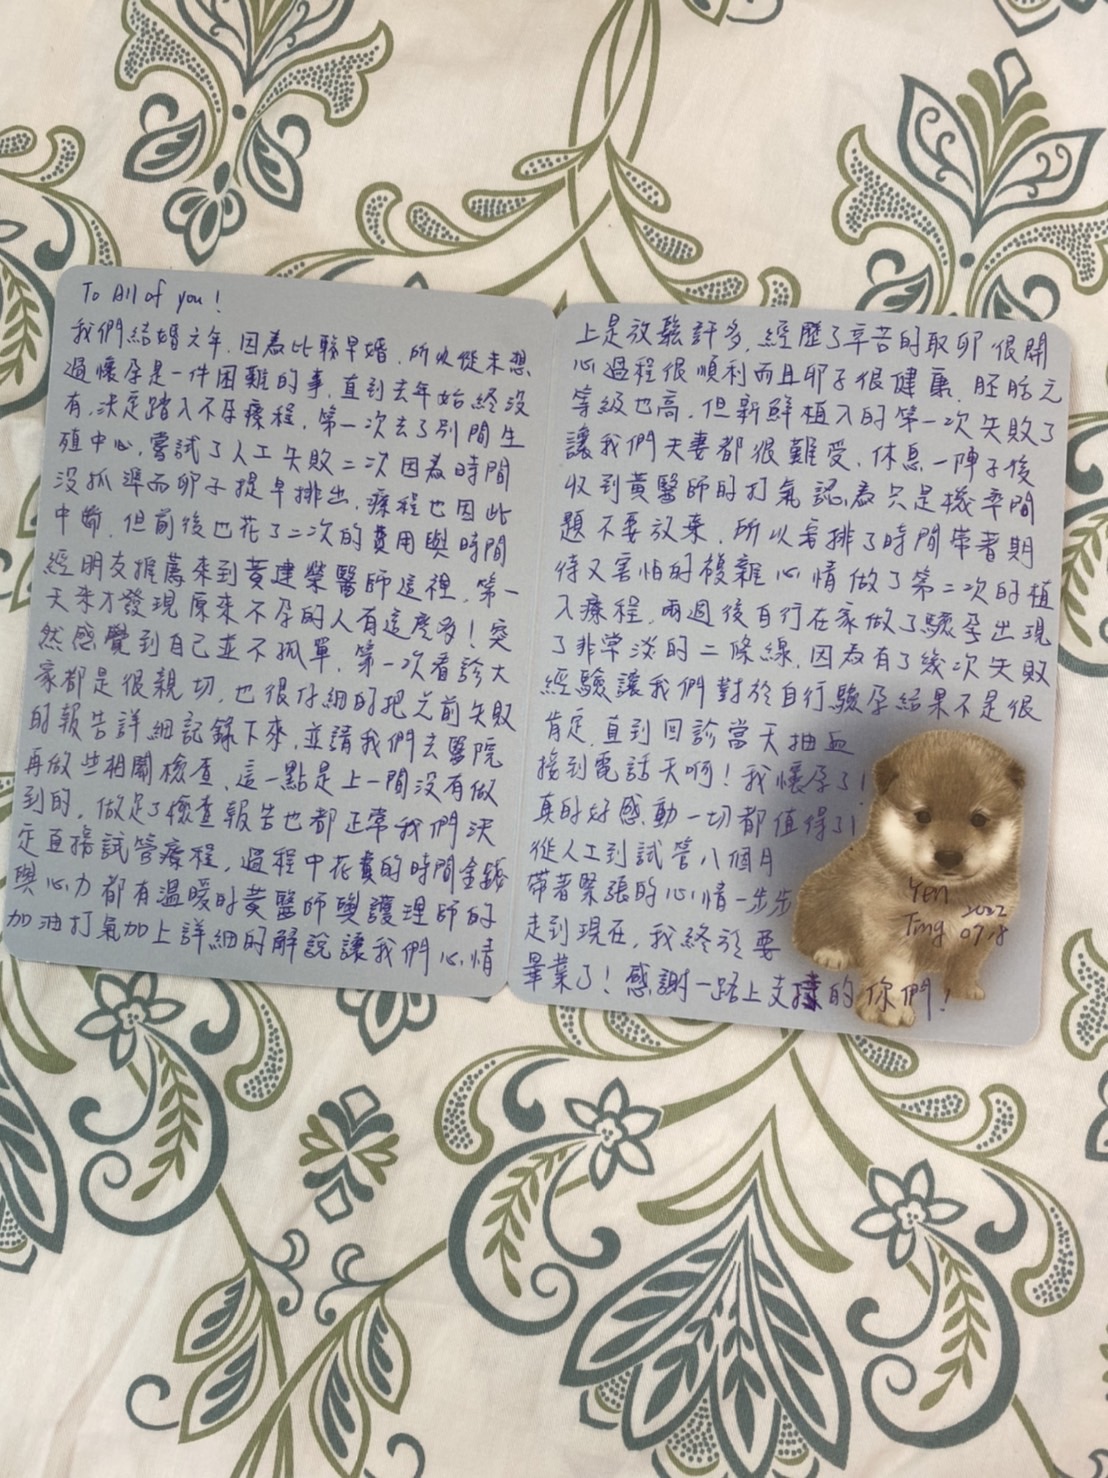 To All of you!
我們結婚六年,因為比較早婚,所以從未想
過懷孕是一件困難的事,直到去年始終沒
有,決定踏入不孕療程,第一次去了別間生
殖中心,嘗試了人工失敗二次因為時間
沒抓準而卵子提早排出,療程也因此
中斷,但前後也花了二次的費用與時間
經朋友推薦來到黃建榮醫師這裡,第一
天來才發現原來不孕的人有這麼多!突
然感覺到自己並不孤單,第一次看診大
家都是很親切,也很仔細的把之前失敗
的報告詳細記錄下來,並請我們去醫院
再做些相關檢查,這一點是上一間沒有做
到的,做完了檢查報告也都正常我們決
定直接試管療程,過程中花費的時間金錢
與心力都有溫暖的黃醫師與護理師的
加油打氣加上詳細的解說讓我們心情
上是放鬆許多,經歷了辛苦的取卵很開
心過程很順利而且卵子很健康,胚胎
等級也高,但新鮮植入的第一次失敗了
讓我們夫妻都很難受,休息一陣子後
收到黃醫師的打氣認為只是機率問
題不要放棄,所以安排了時間帶著期
待又害怕的複雜心情做了第二次的植
入療程,兩週後自行在家做了驗孕出現
了非常淡的二條線,因為有了幾次失敗
經驗讓我們對於自行驗孕結果不是很
肯定,直到回診當天抽血
接到電話天啊!我懷孕了!
真的好感動一切都值得了!
從人工到試管八個月
帶著緊張的心情一步步
走到現在,我終於要
畢業了!感謝一路上支撐的你們!
Yen
Ting 2022
07.18